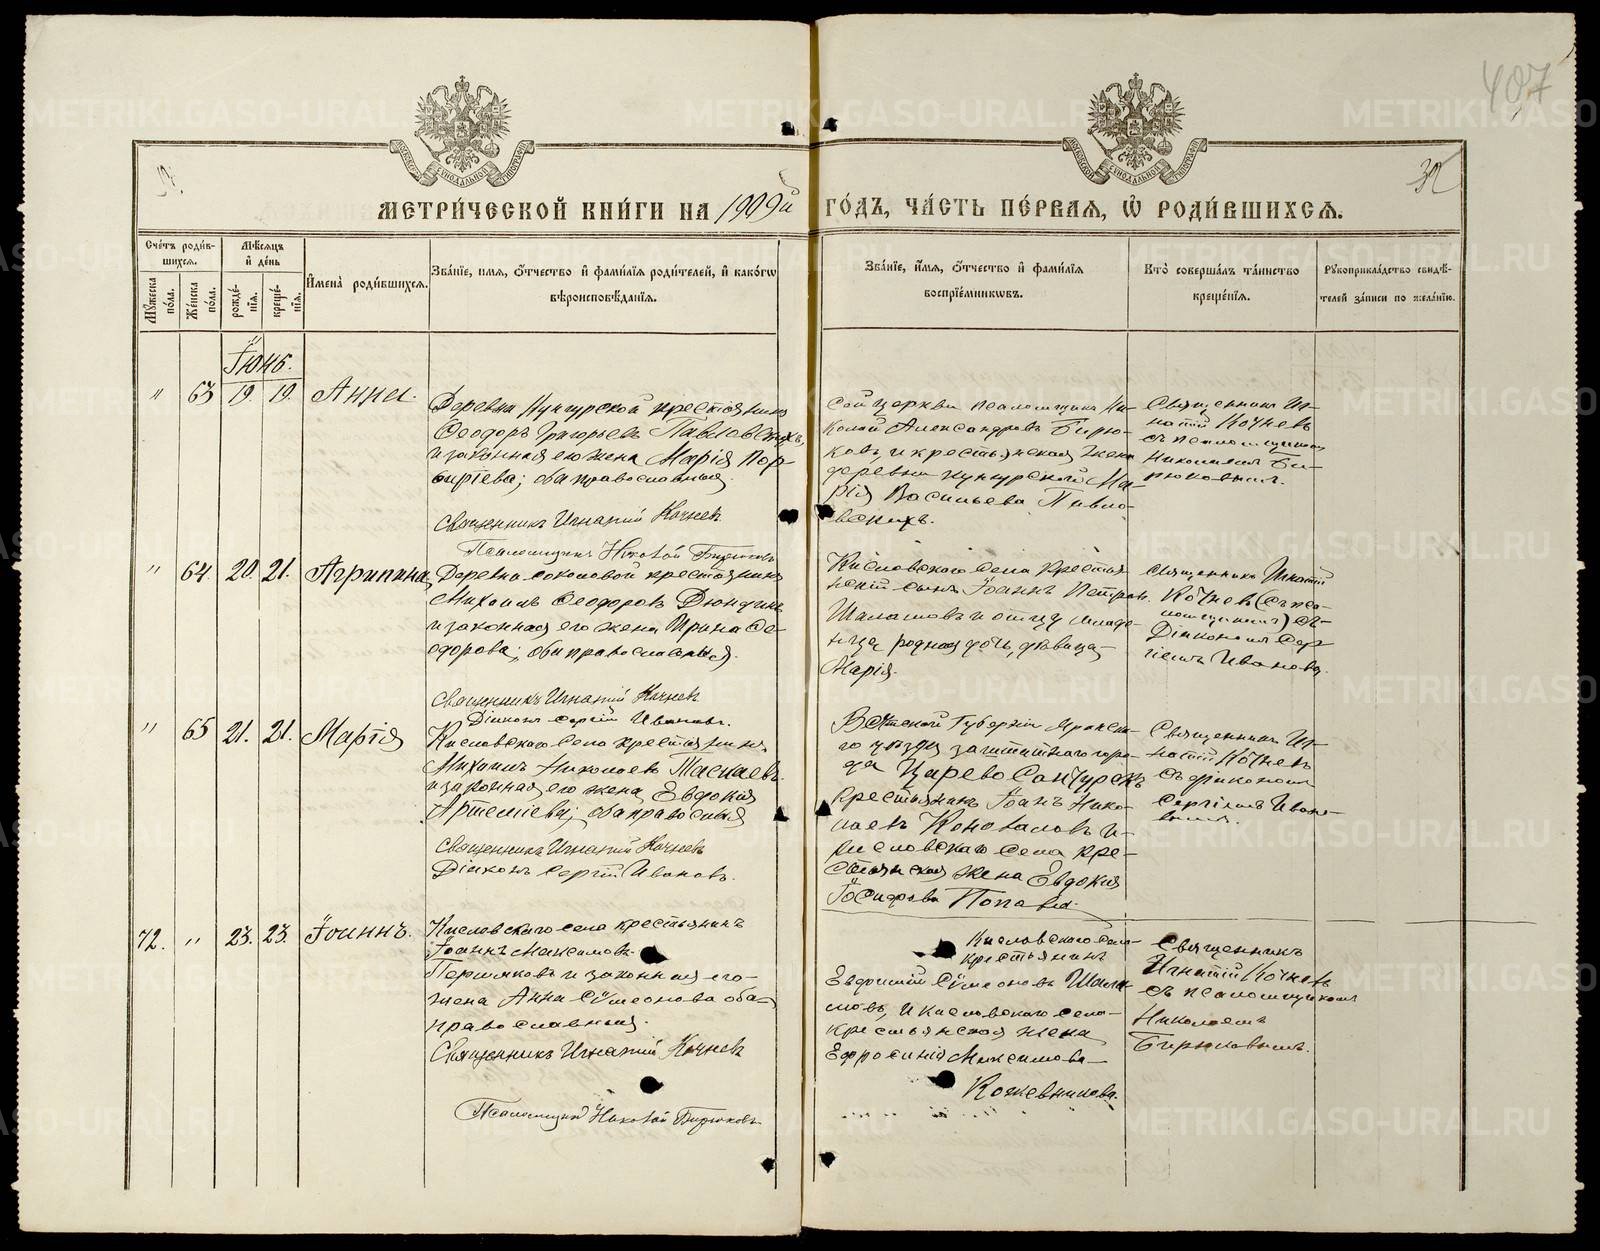 407
32
МЕТРИ́ЧЕСКОЙ КНИ́ГИ НА 1909й ГО́ДЪ, ЧА́СТЬ ПЕ́РВАЯ, Ѽ РОДИ́ВШИХСЯ.
Сче́тъ роди́в-
шихся.
Мѣ́сяцъ
и҆ де́нь
Мꙋ́жеска по́ла.
Же́нска по́ла.
рожде́-
нїѧ.
креще́-
нїѧ.
И҆мена̀ роди́вшихся.
Зва́нїе, и҆́мѧ, ѻ҆́тчество и҆ фами́лїѧ роди́телей, и҆ како́гѡ
вѣроисповѣ́данїѧ.
Зва́нїе, и҆́мѧ, ѻ҆́тчество и҆ фами́лїѧ
воспрїе́мникѡвъ.
Кто̀ соверша́лъ та́инство
креще́нїѧ.
Рꙋкоприкла́дство свидѣ́-
телей за́писи по жела́нїю.
Іюнь.
" 63 19. 19. Анна.
Деревни Кунгурской крестьянинъ
Ѳеодоръ Григорьевъ Павловскихъ,
и законная его жена Марія Пор-
фиріева; оба православныя.
Священникъ Игнатій Кочневъ
Псаломщикъ Николай Бирюковъ
сей церкви псаломщикъ Ни-
колай Александровъ Бирю-
ковъ, и крестьянская жена
деревни Кунгурской Ма-
рія Васильева Павло-
вскихъ.
Священникъ Иг-
натій Кочневъ
съ псаломщикомъ
Николаемъ Би-
рюковымъ.
" 64. 20. 21. Агрипина,
Деревни Соколовой крестьянинъ
Михаилъ Ѳеодоровъ Дюндинъ
и законная его жена Ирина Ѳе-
одорова; оба православныя.
Священникъ Игнатій Кочневъ
Діаконъ Сергій Ивановъ.
Кисловскаго села крестья-
нскій сынъ Іоаннъ Петровъ
Шалашовъ и отцу младе-
нца родная дочь, дѣвица
Марія.
Священникъ Игнатій
Кочневъ (съ пса-
ломщикомъ) съ
Діакономъ Сер-
гіемъ Ивановы.
" 65 21. 21. Марія
Кисловскаго села крестьянинъ
Михаилъ Николаевъ Таскаевъ
и законная его жена Евдокія
Артеміева; оба православныя
Священникъ Игнатій Кочневъ
Діаконъ Сергій Ивановъ.
Вятской губерніи Яранска-
го уѣзда заштатнаго горо-
да Царево Санчурскъ
крестьянинъ Іоанъ Нико-
лаевъ Коноваловъ и
кисловскаго села кре-
стьянская жена Евдокия
Іосифова Попова.
Священникъ Иг-
натій Кочневъ
съ діакономъ
Сергіемъ Ивано-
вымъ.
72. " 23. 23. Іоаннъ.
Кисловскаго села крестьянинъ
Іоаннъ Максимовъ
Пермяковъ и законная его
жена Анна Сѵмеонова оба
православныя.
Священникъ Игнатій Кочневъ
Псаломщикъ Николай Бирюковъ.
Кисловскаго села
крестьянинъ
Евфимій Сѵмеоновъ Шала-
мовъ, и кисловскаго села
крестьянская жена
Ефросинія Максимова
Кожевникова.
Священникъ
Игнатій Кочневъ
съ псаломщикомъ
Николаемъ
Бирюковымъ.
METRIKI.GASO-URAL.RU